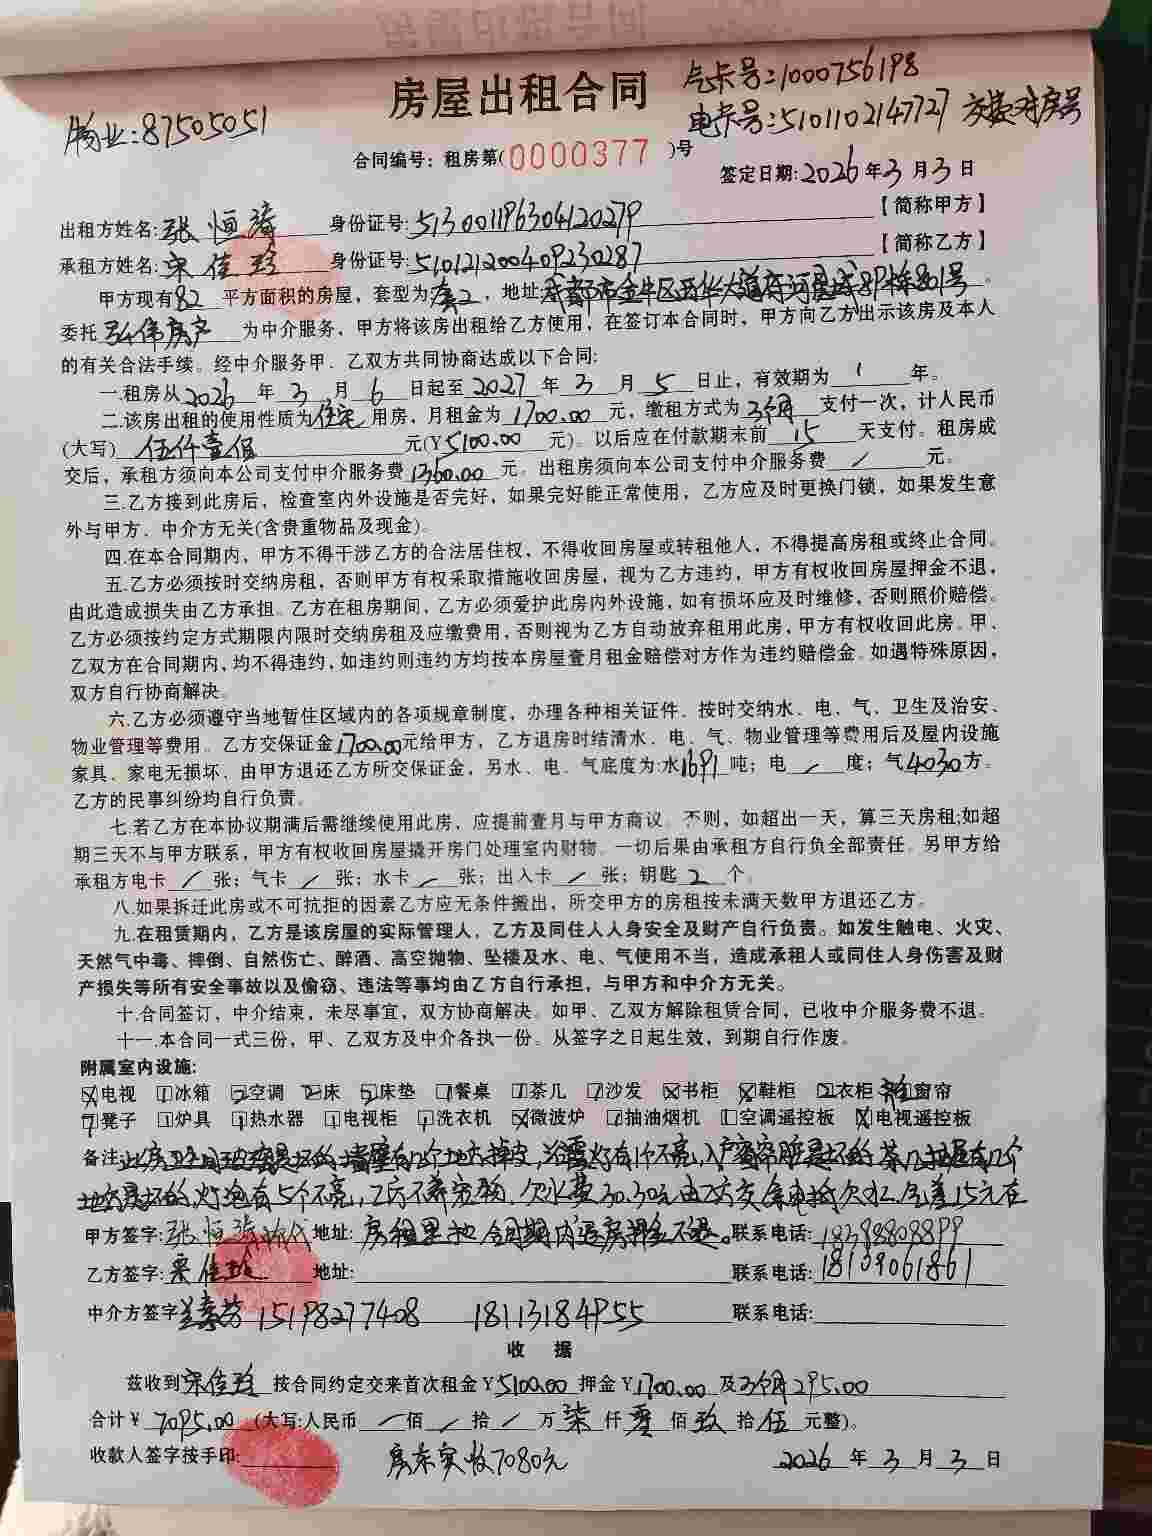 房屋出租合同
气卡号:1000756198
物业:87505051
电卡号:5101102147727
合同编号:租房第(0000377)号
签定日期:2026年3月3日
出租方姓名:张恒 身份证号:513001196304120279【简称甲方】
承租方姓名:宋佳 身份证号:510121200409230287【简称乙方】
甲方现有82平方面积的房屋,套型为套二,地址:成都市金牛区西华大道
委托弘伟房产为中介服务,甲方将该房出租给乙方使用,在签订本合同时,甲方向乙方出示该房及本人
的有关合法手续。经中介服务甲、乙双方共同协商达成以下合同:
一.租房从2026年3月6日起至2027年3月5日止,有效期为1年。
二.该房出租的使用性质为住宅用房,月租金为1700.00元,缴租方式为3个月支付一次,计人民币
(大写)伍仟壹佰元(¥5100.00元)。以后应在付款期末前15天支付。租房成
交后,承租方须向本公司支付中介服务费1360.00元。出租房须向本公司支付中介服务费/元。
三.乙方接到此房后,检查室内外设施是否完好,如果完好能正常使用,乙方应及时更换门锁,如果发生意
外与甲方、中介方无关(含贵重物品及现金)。
四.在本合同期内,甲方不得干涉乙方的合法居住权,不得收回房屋或转租他人,不得提高房租或终止合同。
五.乙方必须按时交纳房租,否则甲方有权采取措施收回房屋,视为乙方违约,甲方有权收回房屋押金不退,
由此造成损失由乙方承担。乙方在租房期间,乙方必须爱护此房内外设施,如有损坏应及时维修,否则照价赔偿。
乙方必须按约定方式期限内限时交纳房租及应缴费用,否则视为乙方自动放弃租用此房,甲方有权收回此房。甲、
乙双方在合同期内,均不得违约,如违约则违约方均按本房屋壹月租金赔偿对方作为违约赔偿金。如遇特殊原因,
双方自行协商解决。
六.乙方必须遵守当地暂住区域内的各项规章制度,办理各种相关证件、按时交纳水、电、气、卫生及治安、
物业管理等费用。乙方交保证金1700.00元给甲方,乙方退房时结清水、电、气、物业管理等费用后及屋内设施
家具、家电无损坏、由甲方退还乙方所交保证金,另水、电、气底度为:水1691吨;电/度;气4030方。
乙方的民事纠纷均自行负责。
七.若乙方在本协议期满后需继续使用此房,应提前壹月与甲方商议。不则,如超出一天,算三天房租;如超
期三天不与甲方联系,甲方有权收回房屋撬开房门处理室内财物。一切后果由承租方自行负全部责任。另甲方给
承租方电卡/张;气卡/张;水卡/张;出入卡/张;钥匙2个。
八.如果拆迁此房或不可抗拒的因素乙方应无条件搬出,所交甲方的房租按未满天数甲方退还乙方。
九.在租赁期内,乙方是该房屋的实际管理人,乙方及同住人人身安全及财产自行负责。如发生触电、火灾、
天然气中毒、摔倒、自然伤亡、醉酒、高空抛物、坠楼及水、电、气使用不当,造成承租人或同住人身伤害及财
产损失等所有安全事故以及偷窃、违法等事均由乙方自行承担,与甲方和中介方无关。
十.合同签订,中介结束,未尽事宜,双方协商解决。如甲、乙双方解除租赁合同,已收中介服务费不退。
十一.本合同一式三份,甲、乙双方及中介各执一份。从签字之日起生效,到期自行作废。
附属室内设施:
电视 冰箱 空调 床 床垫 餐桌 茶几 沙发 书柜 鞋柜 衣柜 窗帘
凳子 炉具 热水器 电视柜 洗衣机 微波炉 抽油烟机 空调遥控板 电视遥控板
备注:此房卫生间 坏的,墙壁有几个地方掉皮,浴霸灯有1个不亮,入户 是坏的,茶几 有几个
地方是坏的,灯泡有5个不亮,乙方不 欠水费30.30元由乙方交 15元在
甲方签字:张恒 代 地址:房租里扣 合同期内退房押金不退。联系电话:18388808899
乙方签字:宋佳 地址: 联系电话:18109061861
中介方签字 15198277408 18113184955 联系电话:
收据
兹收到宋佳 按合同约定交来首次租金¥5100.00押金¥1700.00及3个月295.00
合计¥7095.00(大写:人民币/佰/拾/万柒仟零佰玖拾伍元整)。
收款人签字按手印: 房东实收7080元 2026年3月3日